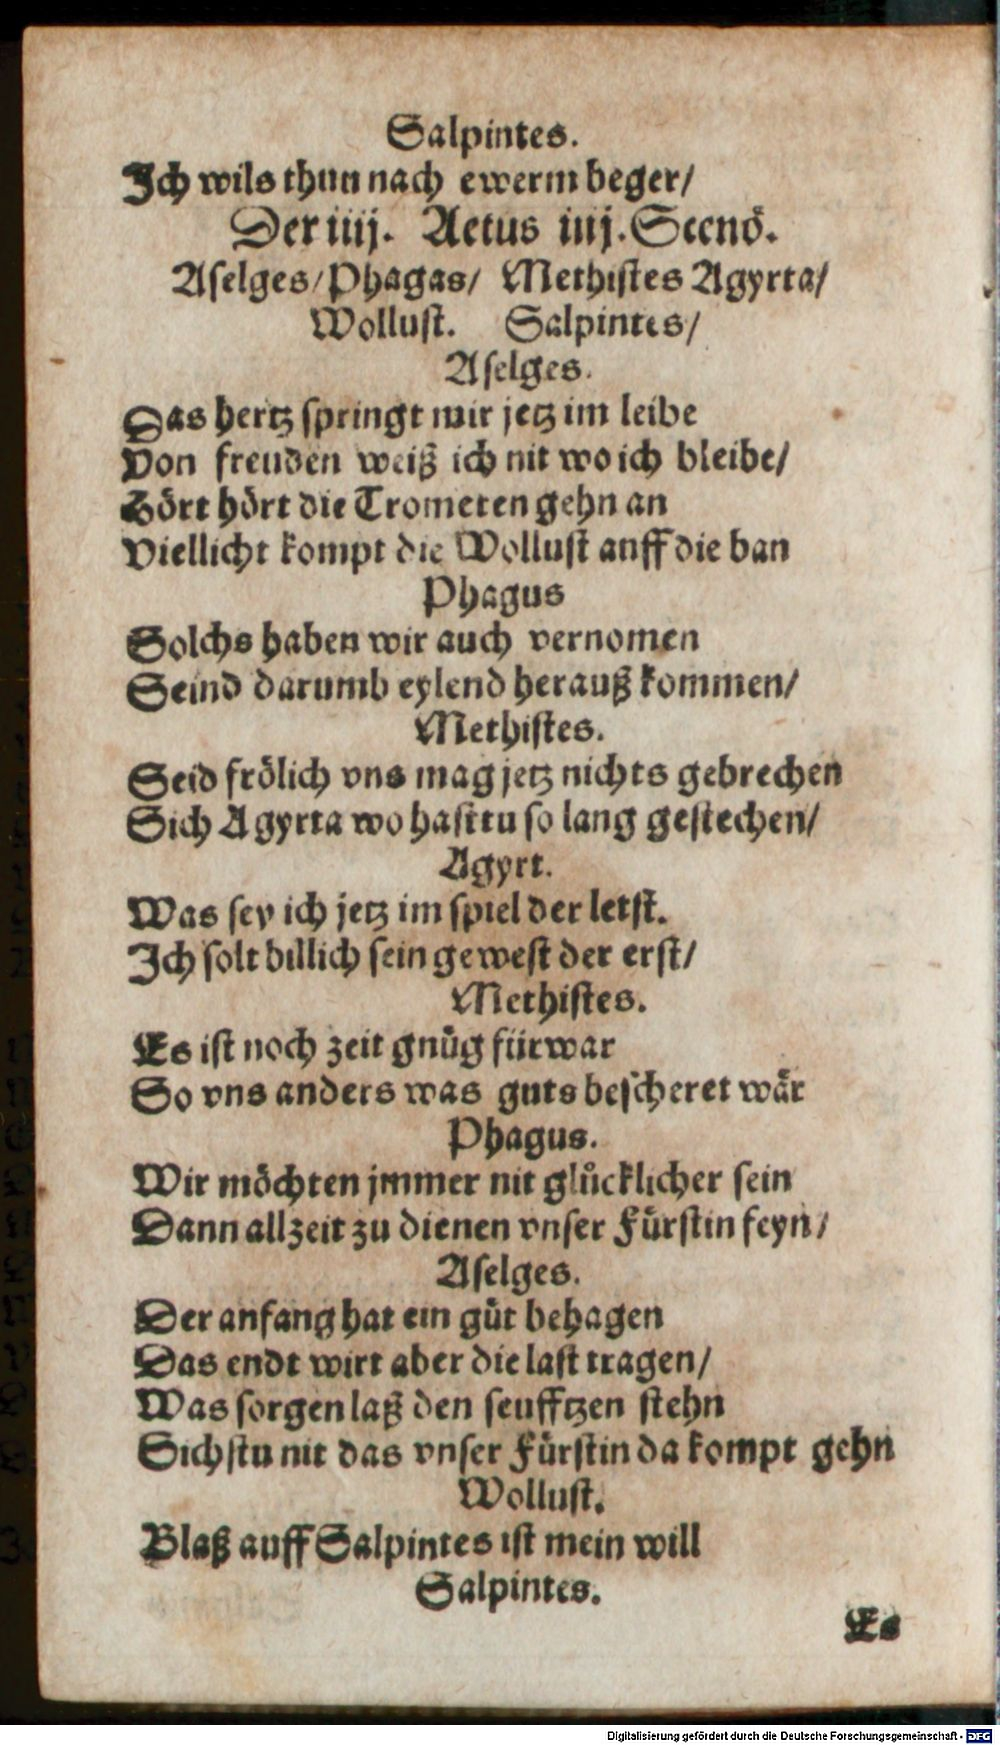 Salpintes.
Ich wils thun nach ewerm beger/
Der iiij. Actus iiij. Scenō.
Aſelges/Phagas/ Methiſtes Agyrta/
Wolluſt. Salpintes/
Aſelges.
Das hertz ſpringt mir jetz im leibe
Von freuden weiß ich nit wo ich bleibe/
Hört hört die Trometen gehn an
Viellicht kompt die Wolluſt auff die ban
Phagus
Solchs haben wir auch vernomen
Seind darumb eylend herauß kommen/
Methiſtes.
Seid frölich vns mag jetz nichts gebrechen
Sich Agyrta wo haſttu ſo lang geſtechen/
Agyrt.
Was ſey ich jetz im ſpiel der letſt.
Ich ſolt billich ſein geweſt der erſt/
Methiſtes.
Es iſt noch zeit gnůg fürwar
So vns anders was guts beſcheret wär
Phagus.
Wir möchten jmmer nit glücklicher ſein
Dann allzeit zu dienen vnſer Fürſtin feyn/
Aſelges.
Der anfang hat ein gůt behagen
Das endt wirt aber die laſt tragen/
Was ſorgen laß den ſeufftzen ſtehn
Sichſtu nit das vnſer Fürſtin da kompt gehn
Wolluſt.
Blaß auff Salpintes iſt mein will
Salpintes.
Es
Digitalisierung gefördert durch die Deutsche Forschungsgemeinschaft - DFG